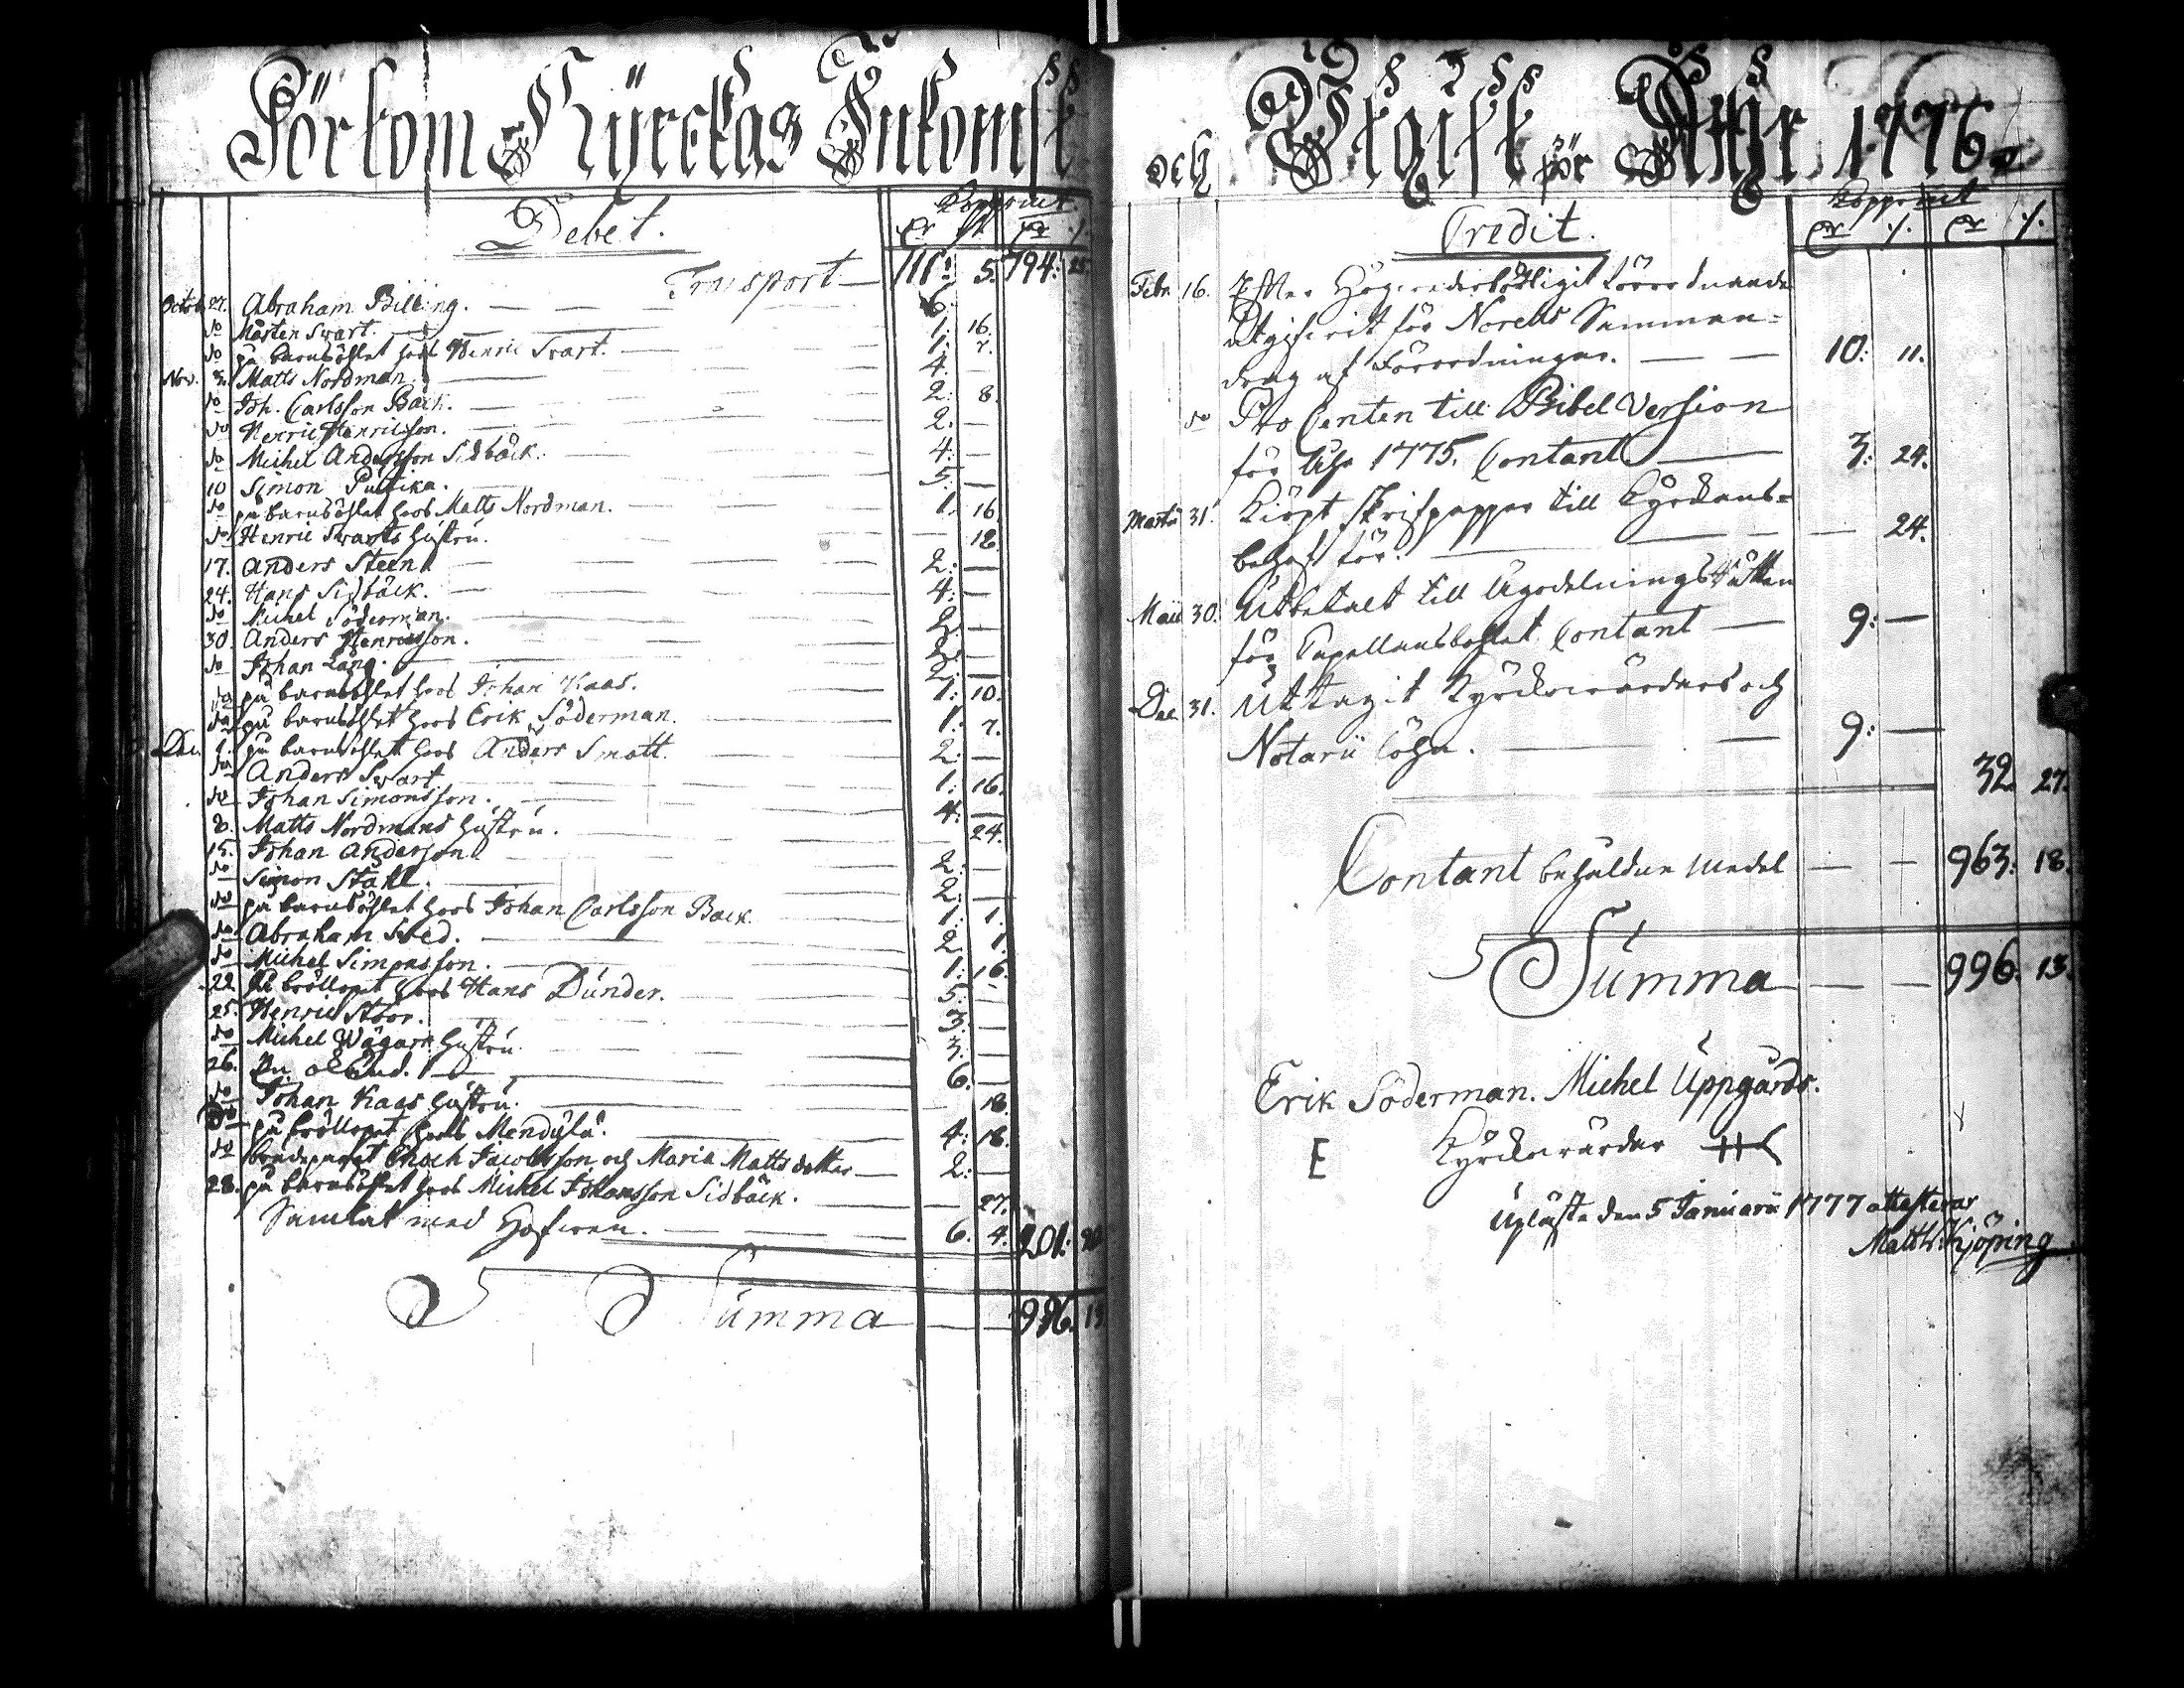 Försom Kyrckas Inkomst
Debet.
Transport — 111: 5. 794: 25.
Octob. 27. Abraham Billing. — 6: —
do Mårten Swart. — 1: 16.
do på barnsöhlet hos Henric Swart. — 1: 7.
Nov. 3. Matts Nordman. — 4: —
do Joh. Carlsson Back. — 2: 8.
do Henric Henricsson. — 2: —
do Michel Andersson Sidbäck. — 4: —
10 Simon Pultika. — 5: —
do på barnsöhlet hos Matts Nordman. — 1. 16.
do Henric Swarts hustru. — 18.
17. Anders Steen. — 2: —
24. Hans Sidbäck. — 4: —
do Michel Söderman. — 2: —
30. Anders Henricsson. — 2: —
do Johan Lång. — 2: —
do på barnsöhlet hos Johan Kaas. 1: 10.
do på barnsöhlet hos Erik Söderman. 1: 7.
Dec. på barnsöhlet hos Anders Smatt. 2: —
do Anders Swart — 1: 16.
do Johan Simonsson. — 4: —
8. Matts Nordmans hustru. — 24.
15. Johan Andersson — 2: —
do Simon Ståhl. — 2: —
do på barnsöhlet hos Johan Carlsson Back. 1: 1.
do Abraham Sved. — 2. 1.
do Michel Simonsson. — 1: 16.
22 På bröllopet hos Hans Dunder. — 5: —
25. Henric Stoor. — 3: —
do Michel Wägars hustru. — 3: —
26. — 6. —
do Johan Kaas hustru. — 18.
do på bröllopet hos Mendylä. — 4: 18.
do brudeparet Enoch Jacobsson och Maria Matts dotter — 2: —
28. på barnsöhlet hos Michel Johansson Sidbäck. — 27.
Samlat med Hofwen. — 6. 4. 201: 20
Summa — 996. 13
och Utgift för Åhr 1776
Credit.
Kopparmt
Febr. 16. Efter Högwederbördligit förordnande
utgifwit för Norells Samman-
drag af Förordningar. — 10: 11.
do Pro Centen till Bibel Version
för Åhr 1775. Contant — 3: 24.
Martii 31. Kiöpt skrifpapper till Kyrckans-
behof för. — 24.
Maii 30. Utbetalt till Ägodelnings Rätten
för Capellansbohlet Contant — 9: —
Dec. 31. Uttagit Kyrckowärdars och
Notarii Löhn. — 9: —
32 27.
Contant behåldne medel — 963: 18.
Summa — 996. 13.
Erik Söderman. Michel Uppgårds.
E Kyrckowärdar
Upläste den 5 Januarii 1777 attesterar
Matth: Kjöping